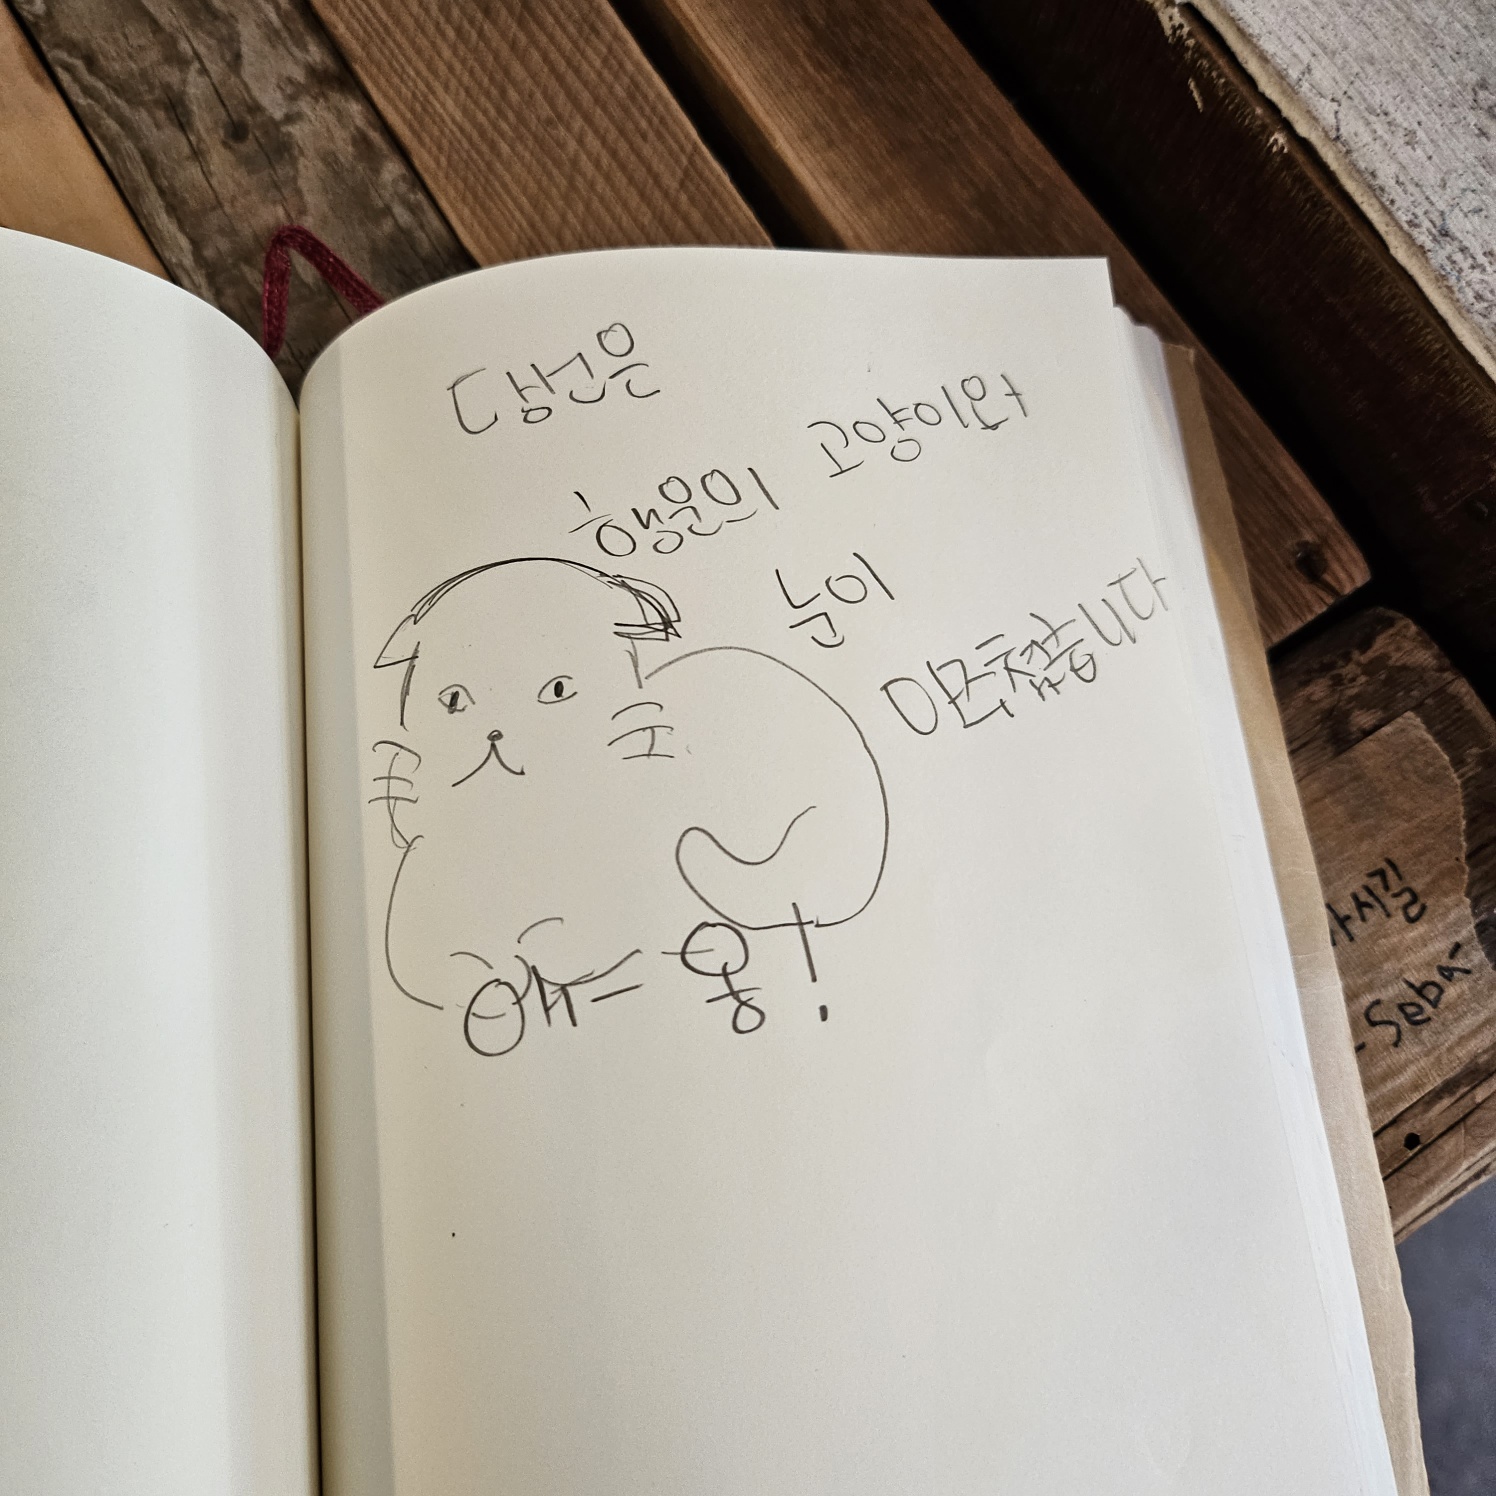 당신은
행운의 고양이와
눈이
마주쳤습니다
애옹!
시길
- Seba-